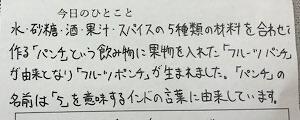 今日のひとこと
水・砂糖・酒・果汁・スパイスの5種類の材料を合わせて
作る「パンチ」という飲み物に果物を入れた「フルーツパンチ」
が由来となり「フルーツポンチ」が生まれました。「パンチ」の
名前は「5」を意味するインドの言葉に由来しています。